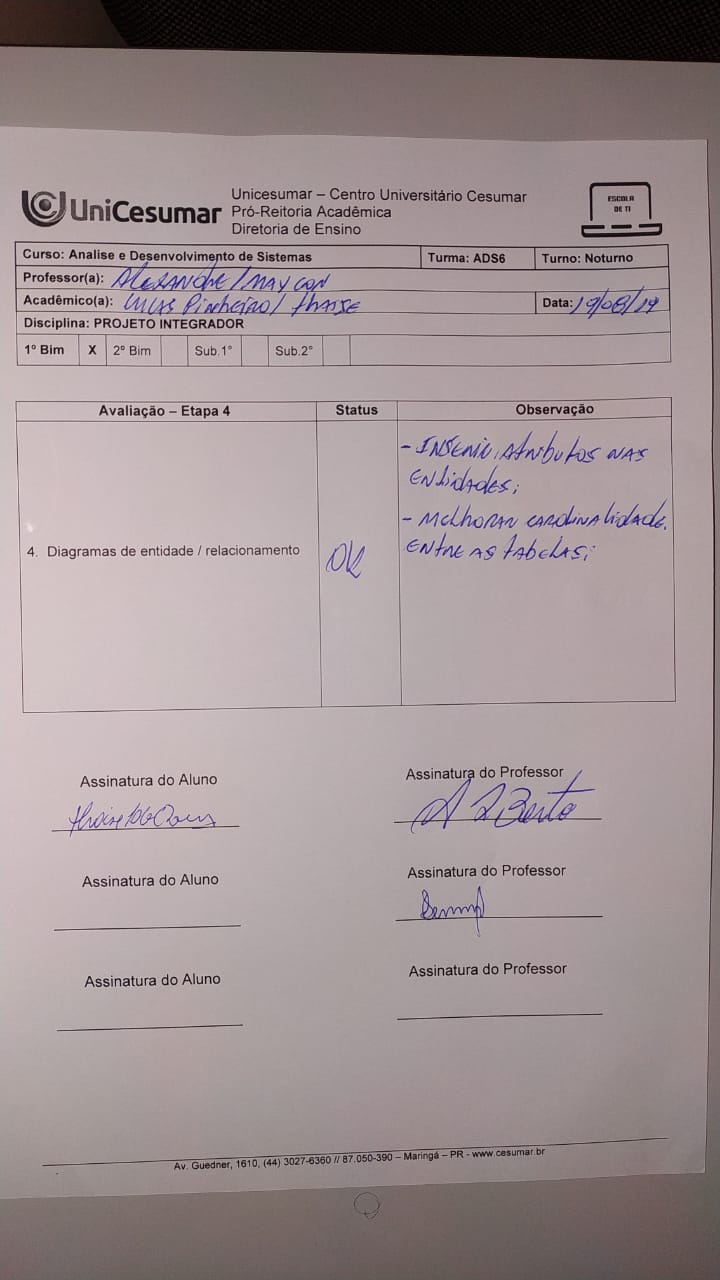 UniCesumar
Unicesumar – Centro Universitário Cesumar
Pró-Reitoria Acadêmica
Diretoria de Ensino
ESCOLA
DE TI
Curso: Analise e Desenvolvimento de Sistemas Turma: ADS6 Turno: Noturno
Professor(a): ALEXANDRE / MAYCON
Acadêmico(a): LUCAS PinHEIRO / THAISE Data: 19/08/19
Disciplina: PROJETO INTEGRADOR
1º Bim X 2º Bim Sub.1° Sub.2°
Avaliação – Etapa 4 Status Observação
- INSERIR ATRIBUTOS NAS
ENTIDADES;
- MELHORAR CARDINALIDADE
ENTRE AS TABELAS;
4. Diagramas de entidade / relacionamento OK
Assinatura do Aluno Assinatura do Professor
Assinatura do Aluno Assinatura do Professor
Assinatura do Aluno Assinatura do Professor
Av. Guedner, 1610, (44) 3027-6360 // 87.050-390 – Maringá – PR - www.cesumar.br